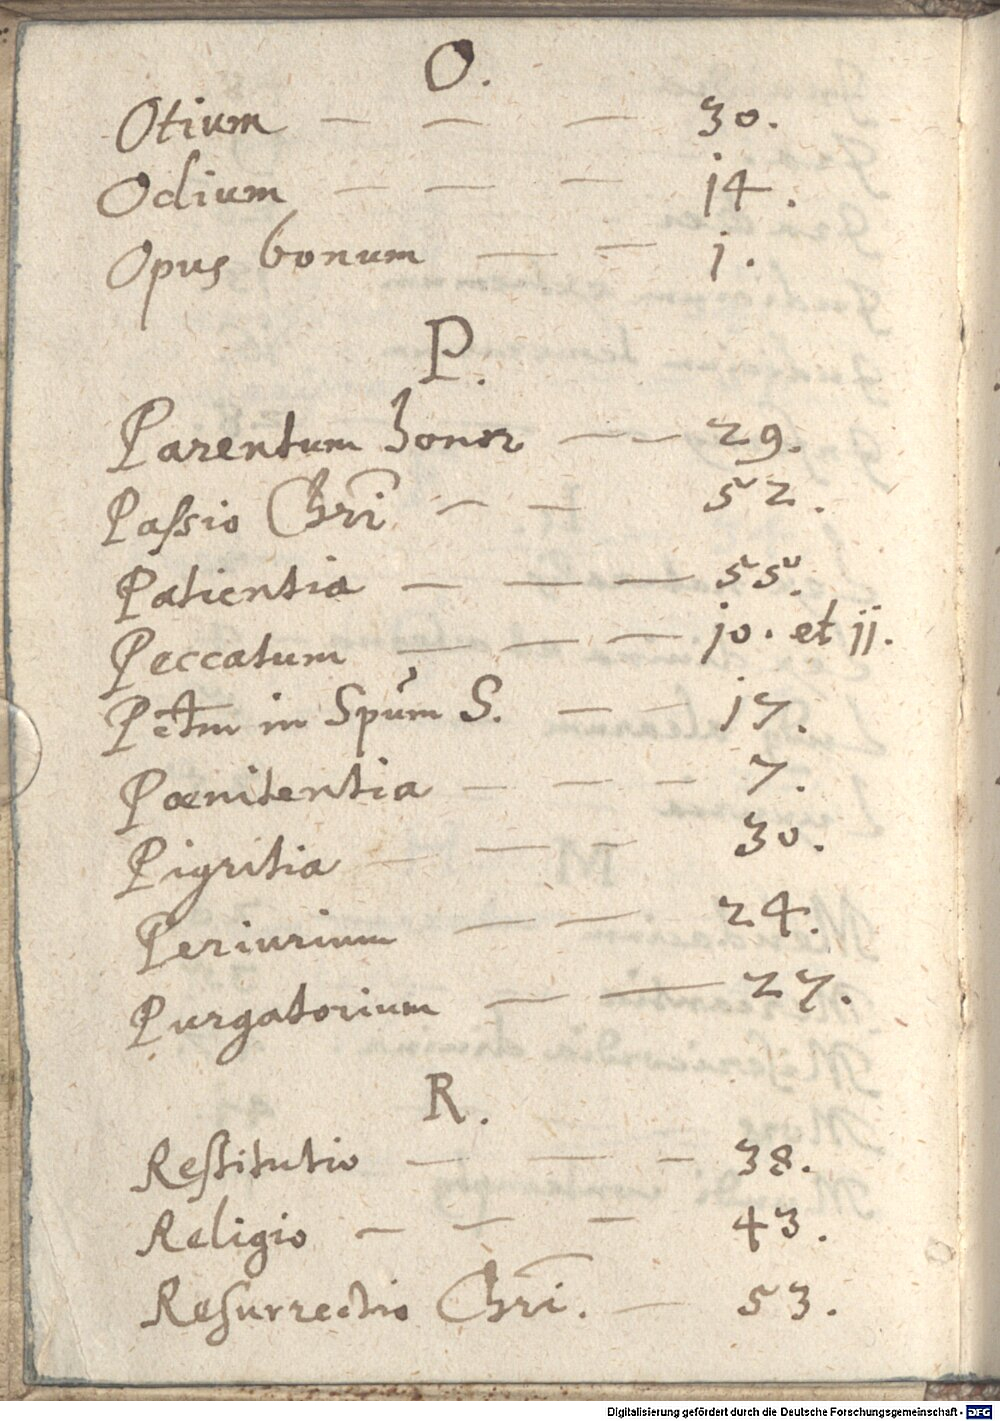 O.
Otium — — — 30.
Odium — — — j4.
Opus bonum — — j.
P.
Parentum honor — — 29.
Passio Chri̅ — — 52.
Patientia — — — 55.
Peccatum — — — jo. et jj.
Pctm̅ in Spu̅m S. — — j7.
Pœnitentia — — — 7.
Pigritia — — — 30.
Periurium — — 24.
Purgatorium — — 27.
R.
Restitutio — — — 38.
Religio — — — 43.
Resurrectio Chri̅. — 53.
Digitalisierung gefördert durch die Deutsche Forschungsgemeinschaft - DFG